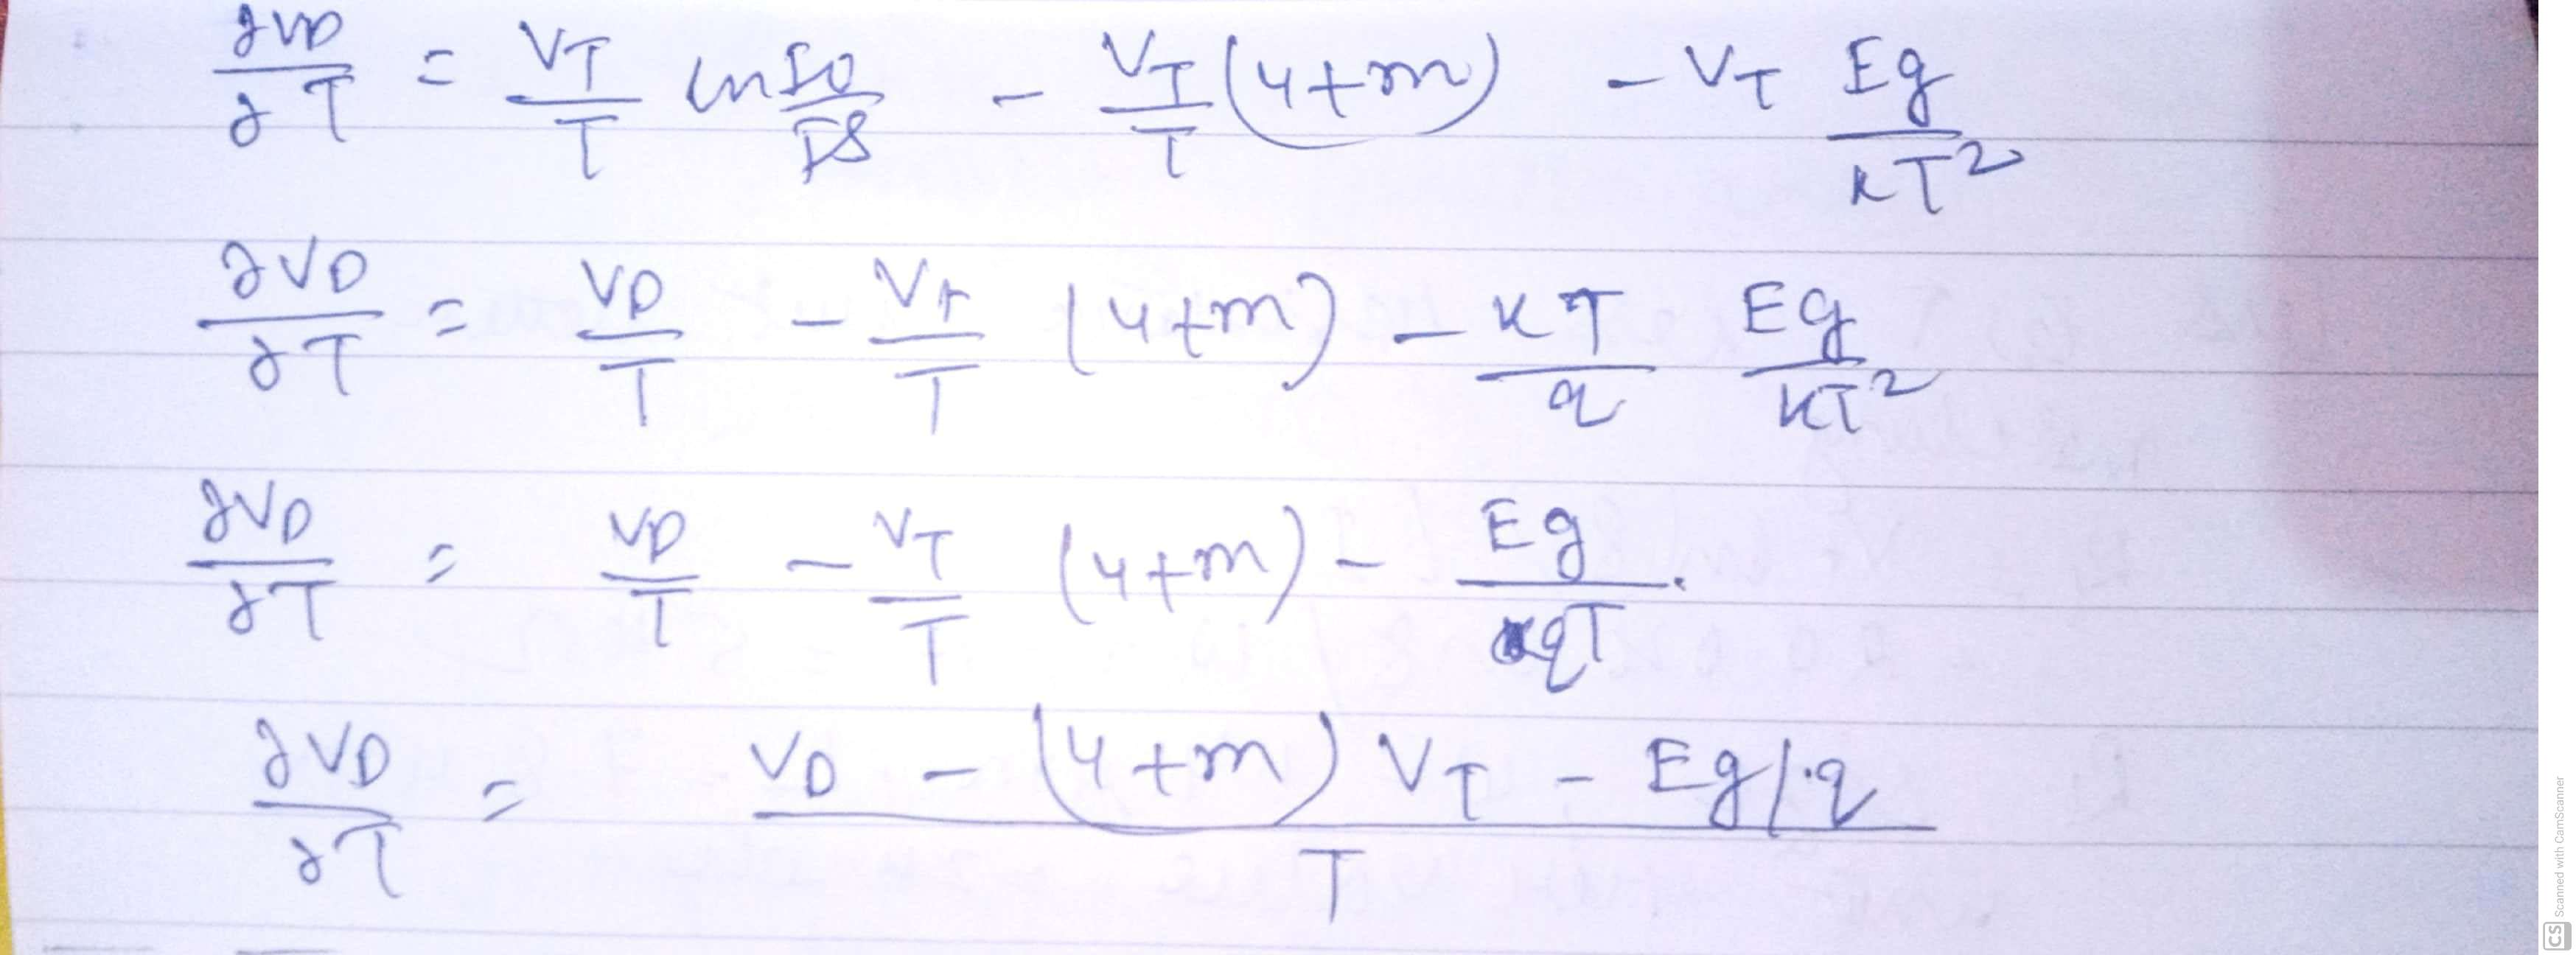 ∂VD/∂T = VT/T ln ID/IS - VT/T (4+m) - VT Eg/kT²
∂VD/∂T = VD/T - VT/T (4+m) - kT/q Eg/kT²
∂VD/∂T = VD/T - VT/T (4+m) - Eg/qT
∂VD/∂T = VD - (4+m) VT - Eg/q / T
CS Scanned with CamScanner